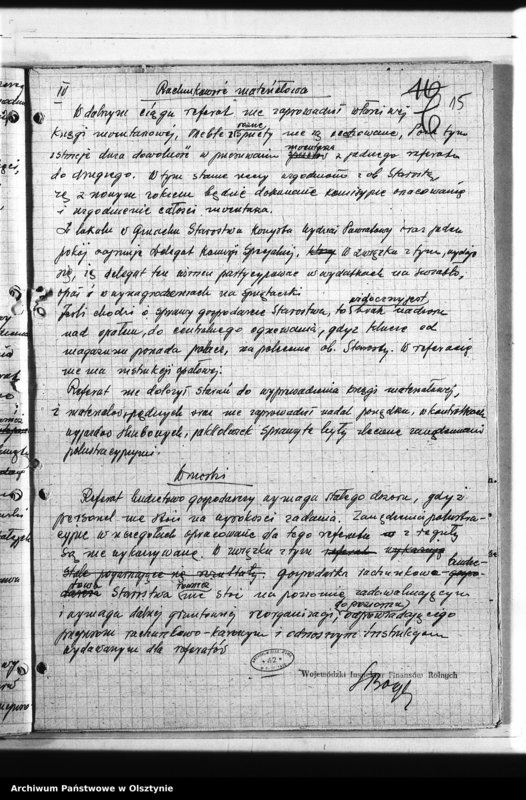 IV Rachunkowość materiałowa
15
W dalszym ciągu referat nie zaprowadził właściwej
księgi inwentarzowej, Meble i sprzęty nie są cechowane, Poza tym
istnieje duża dowolność w przesuwaniu inwentarza z jednego referatu
do drugiego. W tym stanie rzeczy uzgodniono z ob. Starostą,
że z nowym rokiem będzie dokonane komisyjne oznaczenie
i uzgodnienie całości inwentarza.
Z lokalu w gmachu Starostwa korzysta Wydział Powiatowy oraz jeden
pokój zajmuje Delegat Komisji Specjalnej, W związku z tym, wydaje
się, iż delegat ten winien partycypować w wydatkach na światło,
opał i w wynagrodzeniach na sprzątaczki
Jeśli chodzi o sprawy gospodarcze Starostwa, to widoczny jest brak nadzoru
nad opałem, do centralnego ogrzewania, gdyż klucze od
magazynu posiada palacz, na polecenie ob. Starosty. W referacie
nie ma instrukcji opałowej.
Referat nie dołożył starań do wyprowadzenia księgi materiałowej,
z materiałów pędnych oraz nie zaprowadził nadal porządku, w kontrolkach
wyjazdów służbowych, jakkolwiek sprawy te były zlecone zarządzeniami
polustracyjnymi.
Wnioski
Referat budżetowo gospodarczy wymaga stałego dozoru, gdyż
personel nie stoi na wysokości zadania. Zarządzenia polustra-
cyjne w szczegółach opracowane dla tego referatu z reguły
są nie wykonywane. W związku z tym
gospodarka rachunkowo-budże-
towa Starostwa nie stoi na poziomie zadowalniającym
i wymaga dalszej gruntownej reorganizacji (do poziomu) odpowiadającego
przepisom rachunkowo-kasowym i odnośnym instrukcjom
wydawanym dla referatów
42
Wojewódzki Inspektor Finansów Rolnych
Archiwum Państwowe w Olsztynie